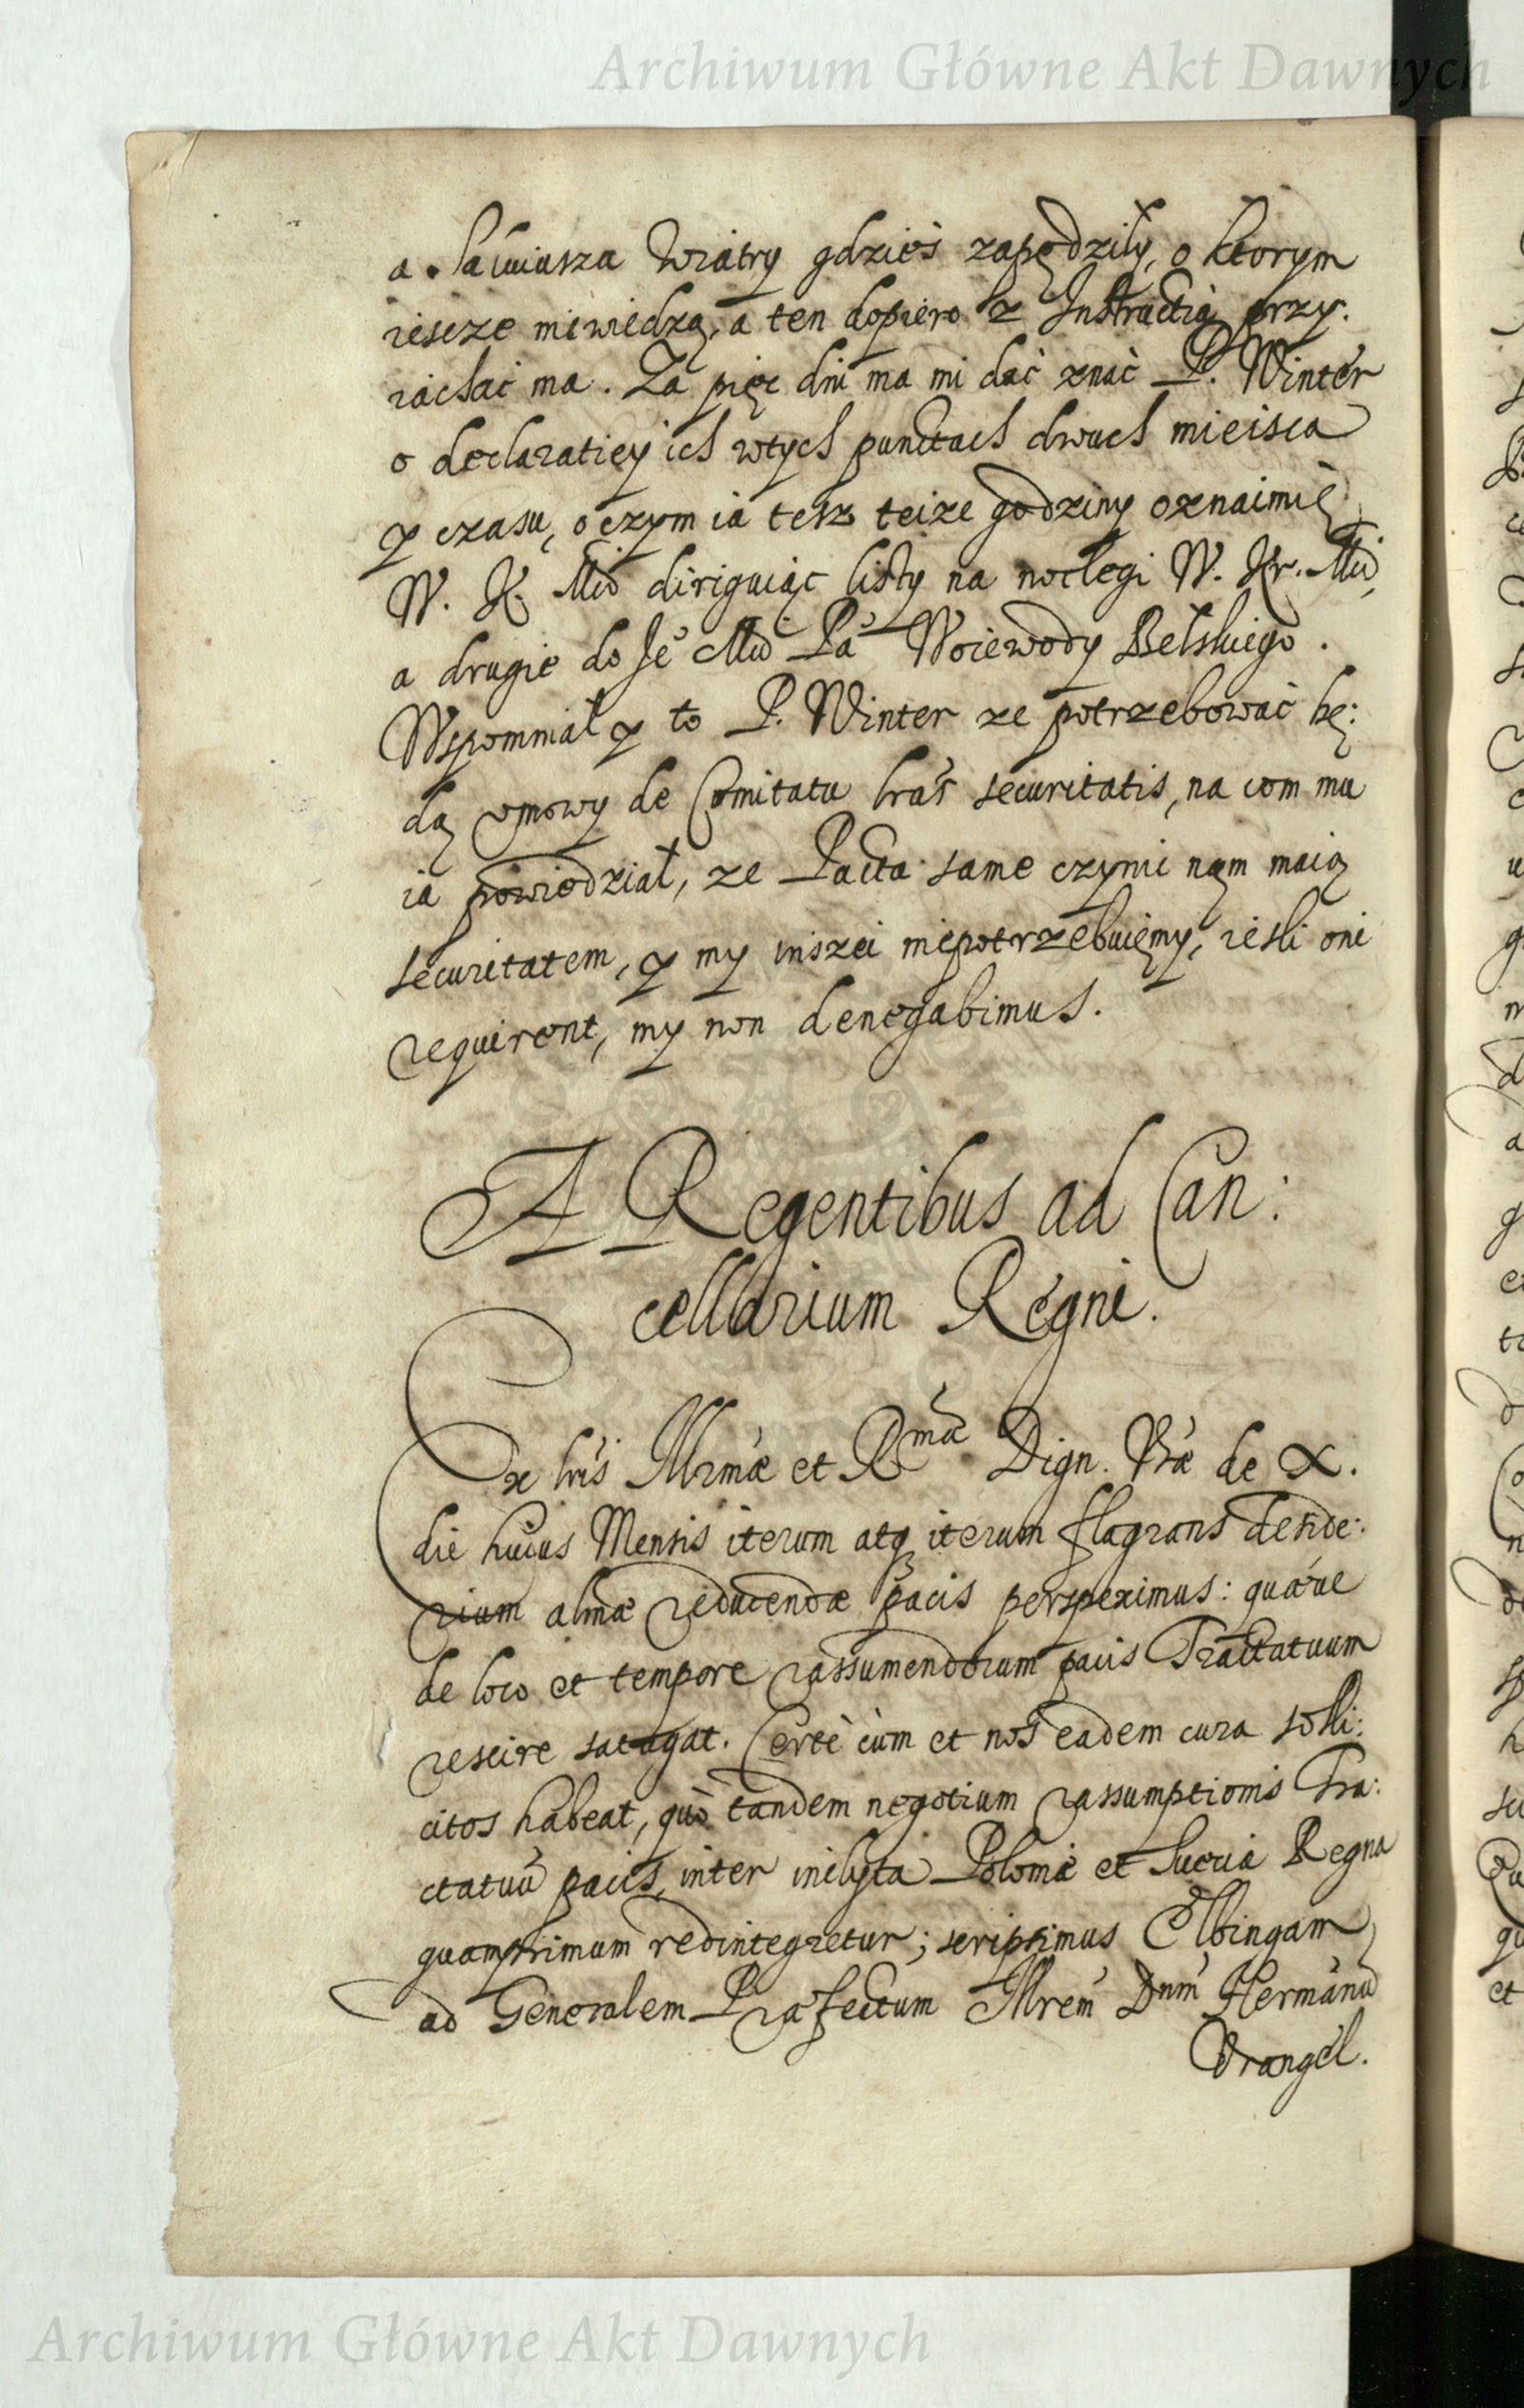 Archiwum Główne Akt Dawnych
a Salwiusza Wiatry gdzieś zapędziły, o ktorym
iescze niewiedzą, a ten dopiero z Instructią przy:
iachać ma. Za pięc dni ma mi dać znać P. Winter
o declaratiey ich wtych punctach dwuch mieisca
y czasu, o czym ia tesz teize godziny oznaimię
W. K. Mci diriguiąc listy na noclegi W. Kr. Mci,
a drugie do Je Mci Pa Woiewody Bełskiego.
Wspomniał y to P. Winter ze potrzebować bę:
dą vmowy de Comitatu lras securitatis, na com mu
ia powiedział, ze Pacta same czynić nam maią
securitatem, y my inszei niepotrzebuiemy, iesli oni
requirent, my non denegabimus.
A Regentibus ad Can:
cellarium Regni.
Ex lris Illrmæ et Rmæ Dign. Vræ de X.
die huius Mensis iterum atq iterum flagrans deside:
rium almæ reducendæ pacis perspeximus: quáve
de loco et tempore rassumendorum pacis Tractatuum
rescire satagat. Certè cùm et nos eadem cura solli:
citos habeat, quò tandem negotium rassumptionis Tra:
ctatuũ pacis, inter inclyta Poloniæ et Sueciæ Regna
quamprimum redintegretur; scripsimus Elbingam
ad Generalem Præfectum Illrem Dnm Hermanũ
Vrangel.
Archiwum Główne Akt Dawnych